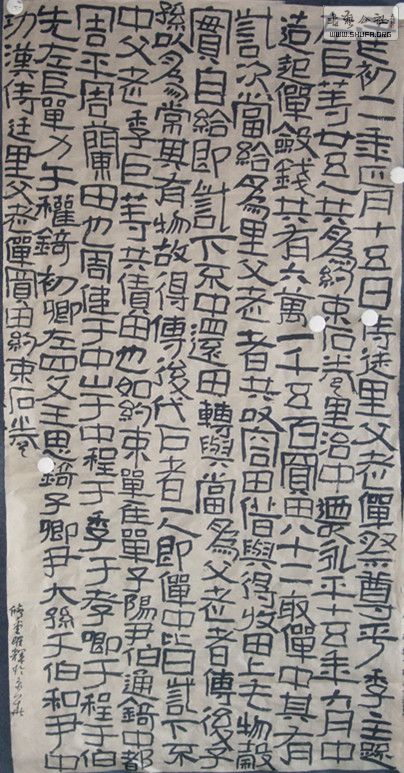 建初二年正月十五日侍廷里父老僤祭尊于季主疏
左巨等廿五人共為約束石券里治中迺以永平十五年六月中
造起僤斂錢共有六萬一千五百買田八十二畝僤中其有
訾次當給為里父老者共以容田借與得收田上毛物穀
實自給即訾下不中還田轉與當為父老者傳後子
孫以為常其有物故得傳後代戶者一人即僤中皆訾下不
中父老季巨等共賃田也如約束單侯單子陽尹伯通錡中都
周平周蘭田也周偉于中山于中程于季于孝卿于程于伯
先左巨單力于稚錡初卿左中文王思錡子卿尹大孫于伯和尹中
功漢侍廷里父老僤買田約束石券
WWW.SHUFA.ORG